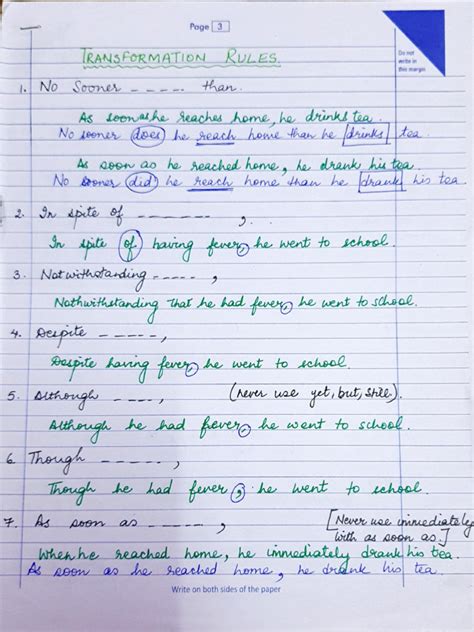 Page 3
Do not
write in
this margin
TRANSFORMATION RULES.
1. No Sooner _ _ _ _ _ than.
As soon as he reaches home, he drinks tea.
No sooner does he reach home than he drinks tea.
As soon as he reached home, he drank his tea.
No sooner did he reach home than he drank his tea.
2. In spite of _ _ _ _ _ _ _ ,.
In spite of having fever, he went to school.
3. Notwithstanding _ _ _ _ _ ,
Nothwithstanding that he had fever, he went to school.
4. Despite _ _ _ _ _,
Despite having fever, he went to school.
5. Although _ _ _ _, (never use yet, but, still).
Although he had fever, he went to school.
6. Though _ _ _ _ _,
Though he had fever, he went to school.
7. As soon as _ _ _ _ _, [Never use immediately
with as soon as.]
When he reached home, he immediately drank his tea.
As soon as he reached home, he drank his tea.
Write on both sides of the paper